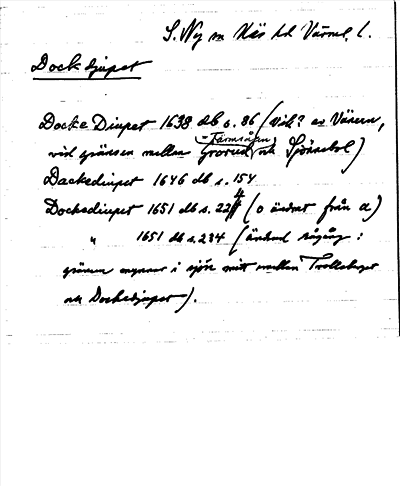 S. Ny m Näs hd Värml. l.
Dockdjupet
Docke Diupet 1638 db s. 86 (Vik? av Vänern,
= Tärmsågen
vid gränsen mellan Grovud och Sjönnebol)
Dackediupet 1646 db s. 154
Dockediupet 1651 db s. 224 (o ändrat från a)
" 1651 db s. 234 (ändrad rågång:
gränsen mynnar i sjön mitt mellan Trolleberget
och Dockedjupet).